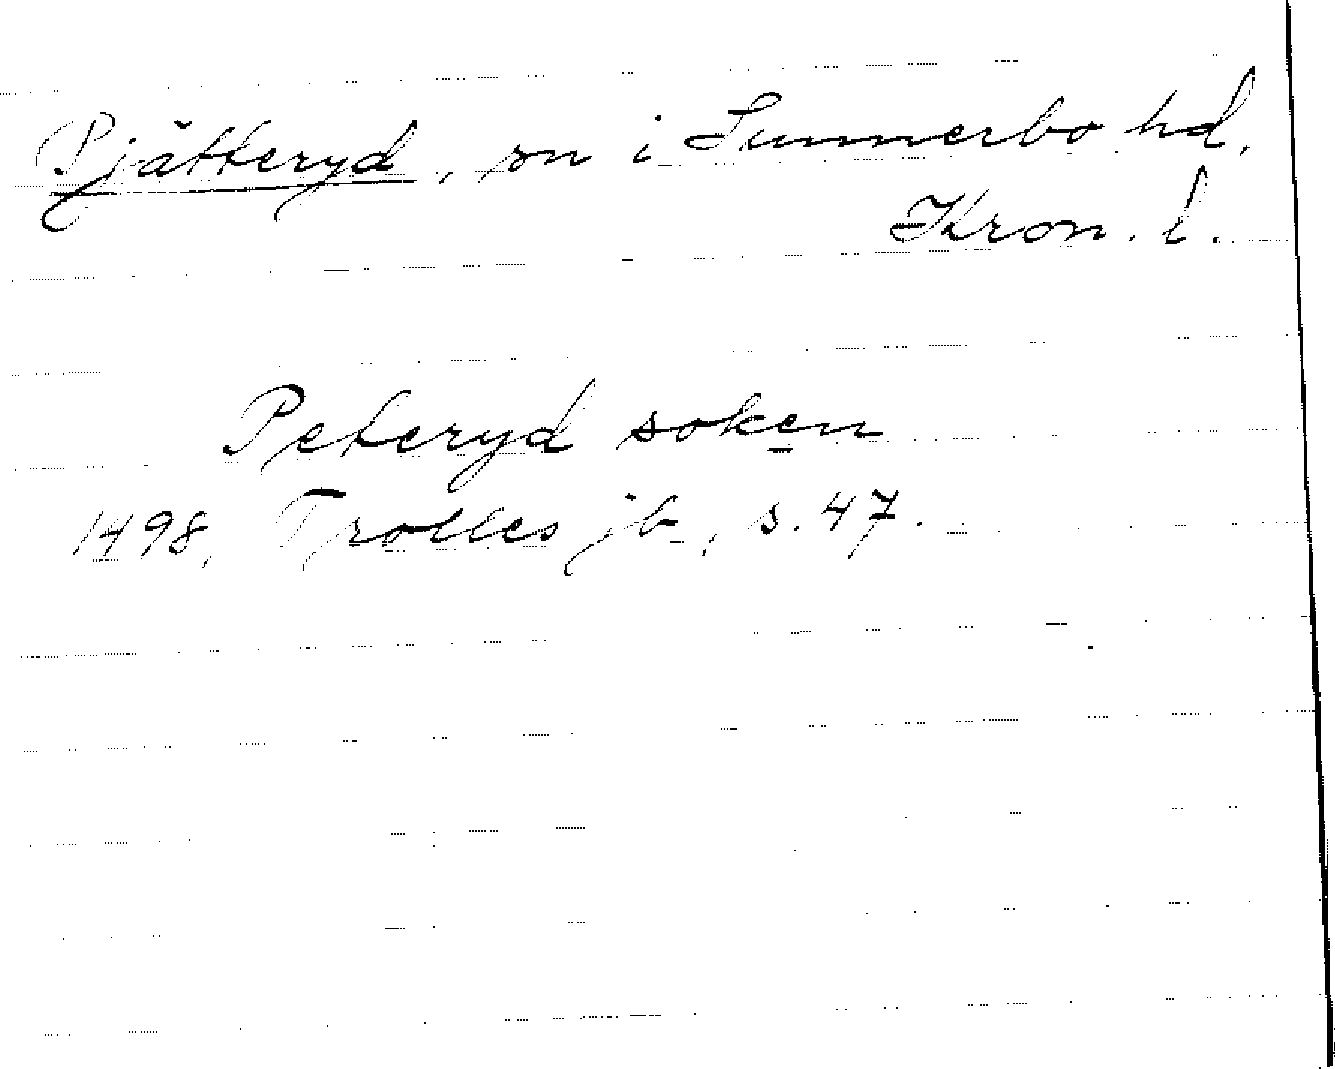 Pjätteryd, sn i Sunnerbo hd,
Kron. l.
Peteryd soken
1498, Trolles jb, s. 47.